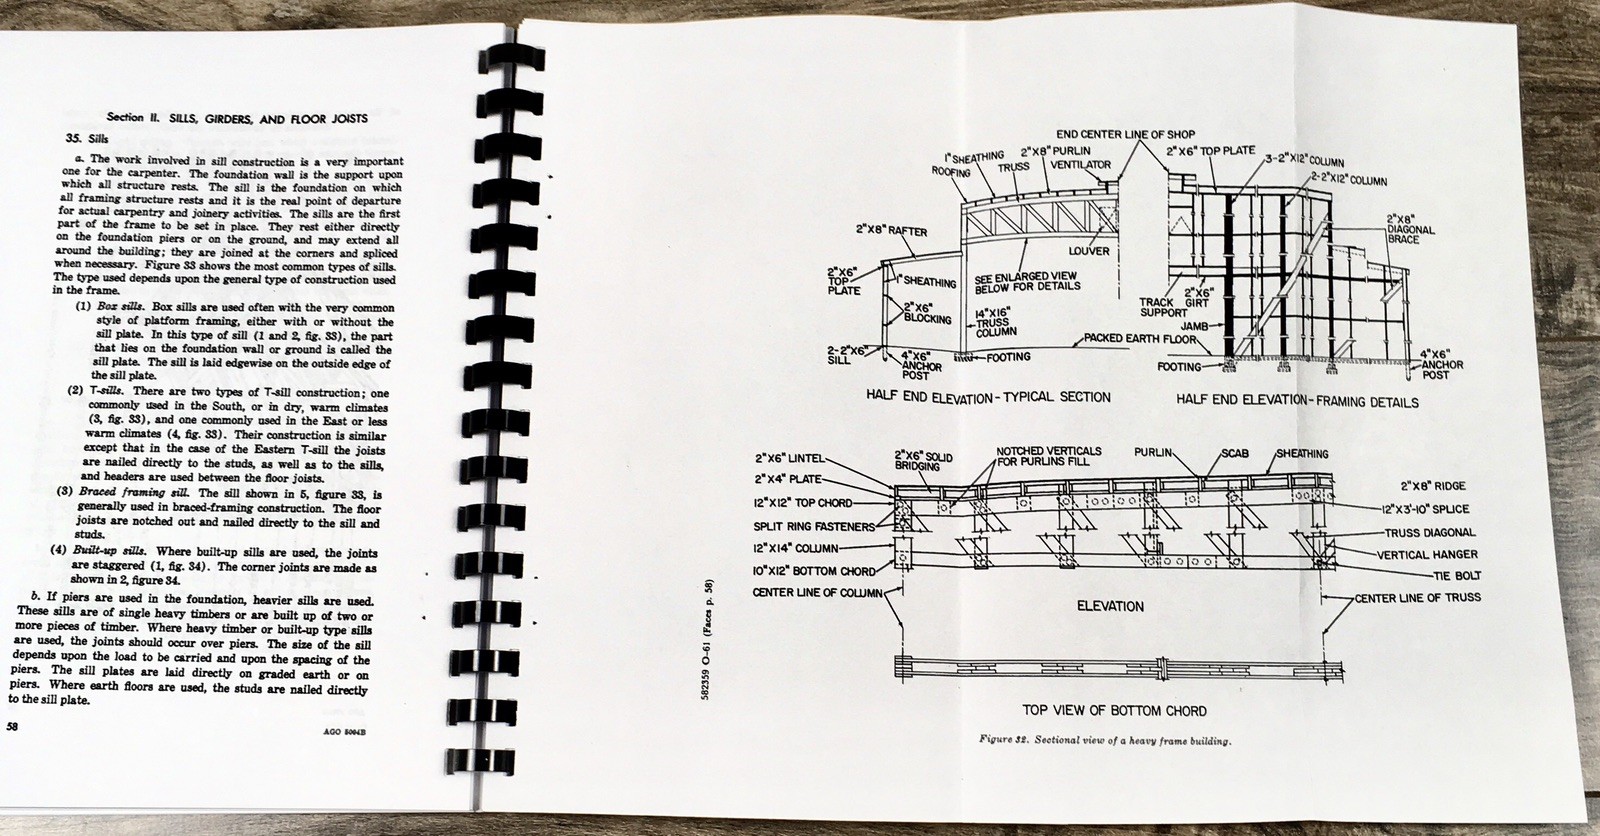 Section II. SILLS, GIRDERS, AND FLOOR JOISTS
35. Sills
a. The work involved in sill construction is a very important
one for the carpenter. The foundation wall is the support upon
which all structure rests. The sill is the foundation on which
all framing structure rests and it is the real point of departure
for actual carpentry and joinery activities. The sills are the first
part of the frame to be set in place. They rest either directly
on the foundation piers or on the ground, and may extend all
around the building; they are joined at the corners and spliced
when necessary. Figure 33 shows the most common types of sills.
The type used depends upon the general type of construction used
in the frame.
(1) Box sills. Box sills are used often with the very common
style of platform framing, either with or without the
sill plate. In this type of sill (1 and 2, fig. 33), the part
that lies on the foundation wall or ground is called the
sill plate. The sill is laid edgewise on the outside edge of
the sill plate.
(2) T-sills. There are two types of T-sill construction; one
commonly used in the South, or in dry, warm climates
(3, fig. 33), and one commonly used in the East or less
warm climates (4, fig. 33). Their construction is similar
except that in the case of the Eastern T-sill the joists
are nailed directly to the studs, as well as to the sills,
and headers are used between the floor joists.
(3) Braced framing sill. The sill shown in 5, figure 33, is
generally used in braced-framing construction. The floor
joists are notched out and nailed directly to the sill and
studs.
(4) Built-up sills. Where built-up sills are used, the joints
are staggered (1, fig. 34). The corner joints are made as
shown in 2, figure 34.
b. If piers are used in the foundation, heavier sills are used.
These sills are of single heavy timbers or are built up of two or
more pieces of timber. Where heavy timber or built-up type sills
are used, the joints should occur over piers. The size of the sill
depends upon the load to be carried and upon the spacing of the
piers. The sill plates are laid directly on graded earth or on
piers. Where earth floors are used, the studs are nailed directly
to the sill plate.
58
AGO 5064B
END CENTER LINE OF SHOP
1" SHEATHING
ROOFING
TRUSS
2"X8" PURLIN
VENTILATOR
2"X6" TOP PLATE
3-2"X12" COLUMN
2-2"X12" COLUMN
2"X8"
DIAGONAL
BRACE
2"X8" RAFTER
LOUVER
2"X6"
TOP
PLATE
1" SHEATHING
SEE ENLARGED VIEW
BELOW FOR DETAILS
2"X6"
BLOCKING
14"X16"
TRUSS
COLUMN
TRACK
SUPPORT
2"X6"
GIRT
JAMB
PACKED EARTH FLOOR
2-2"X6"
SILL
4"X6"
ANCHOR
POST
FOOTING
FOOTING
4"X6"
ANCHOR
POST
HALF END ELEVATION-TYPICAL SECTION
HALF END ELEVATION-FRAMING DETAILS
2"X6" LINTEL
2"X4" PLATE
12"X12" TOP CHORD
SPLIT RING FASTENERS
12"X14" COLUMN
10"X12" BOTTOM CHORD
CENTER LINE OF COLUMN
2"X6" SOLID
BRIDGING
NOTCHED VERTICALS
FOR PURLINS FILL
PURLIN
SCAB
SHEATHING
2"X8" RIDGE
12"X3'-10" SPLICE
TRUSS DIAGONAL
VERTICAL HANGER
TIE BOLT
CENTER LINE OF TRUSS
ELEVATION
TOP VIEW OF BOTTOM CHORD
Figure 32. Sectional view of a heavy frame building.
582359 O-61 (Faces p. 58)